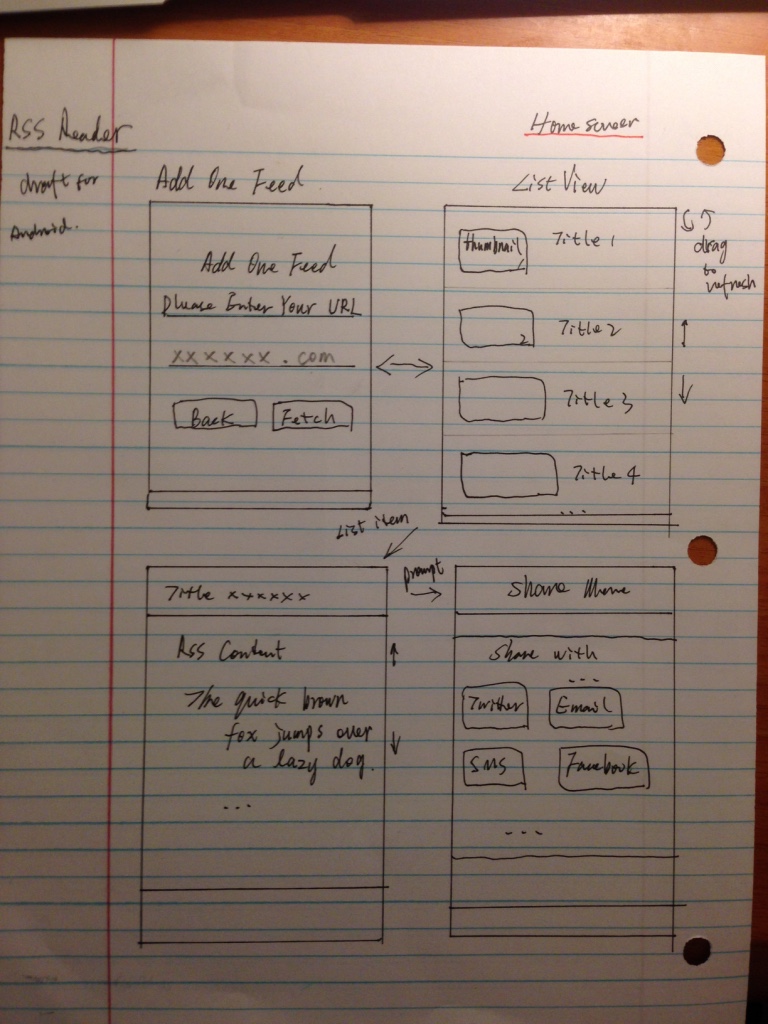 RSS Reader
draft for
Android.
Home screen
Add One Feed
Add One Feed
Please Enter Your URL
xxxxxx.com
Back
Fetch
List View
thumbnail 1
Title 1
2
Title 2
Title 3
Title 4
...
drag
to
refresh
List item
Title xxxxxx
RSS Content
The quick brown
fox jumps over
a lazy dog.
...
prompt
Share Menu
Share with
...
Twitter
Email
SMS
Facebook
...